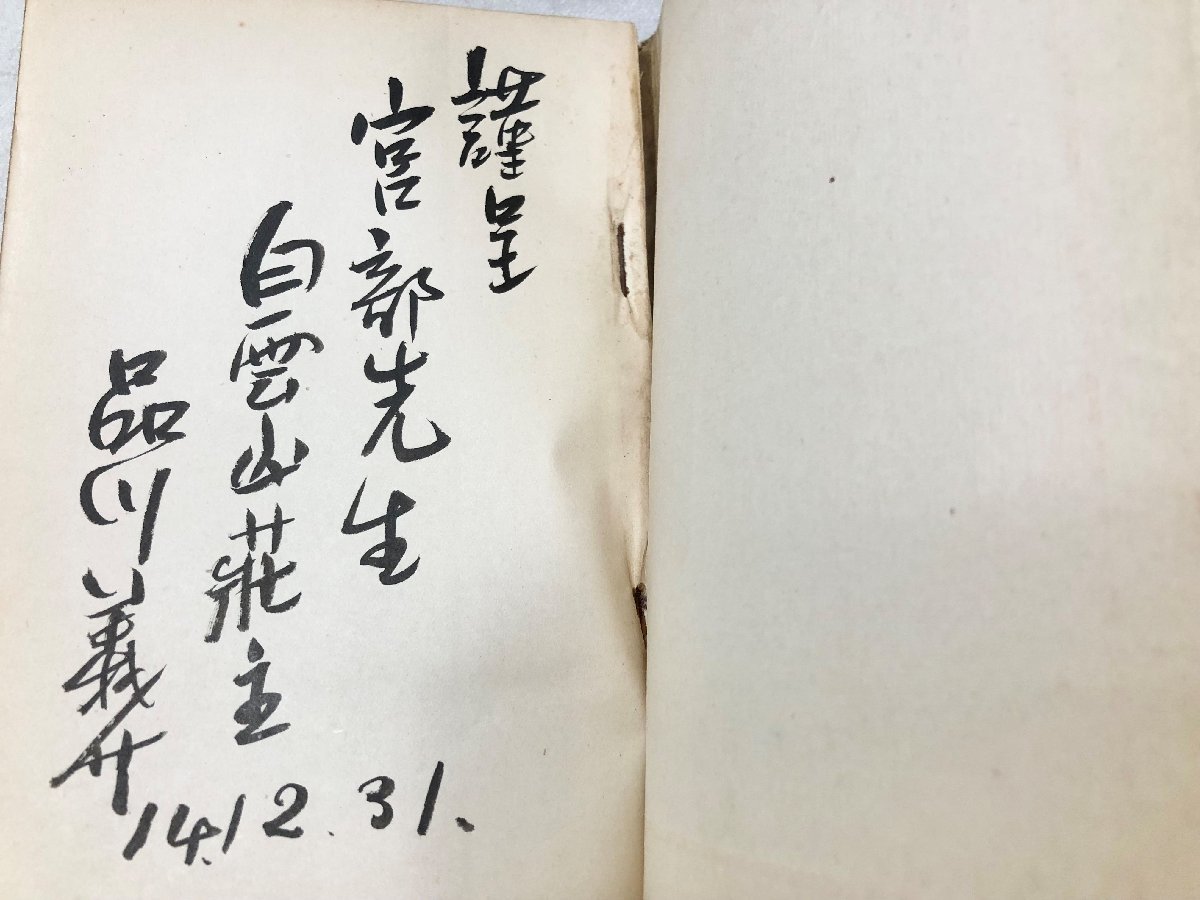 謹呈
宮部先生
白雲山荘主
品川義介
14.12.31.